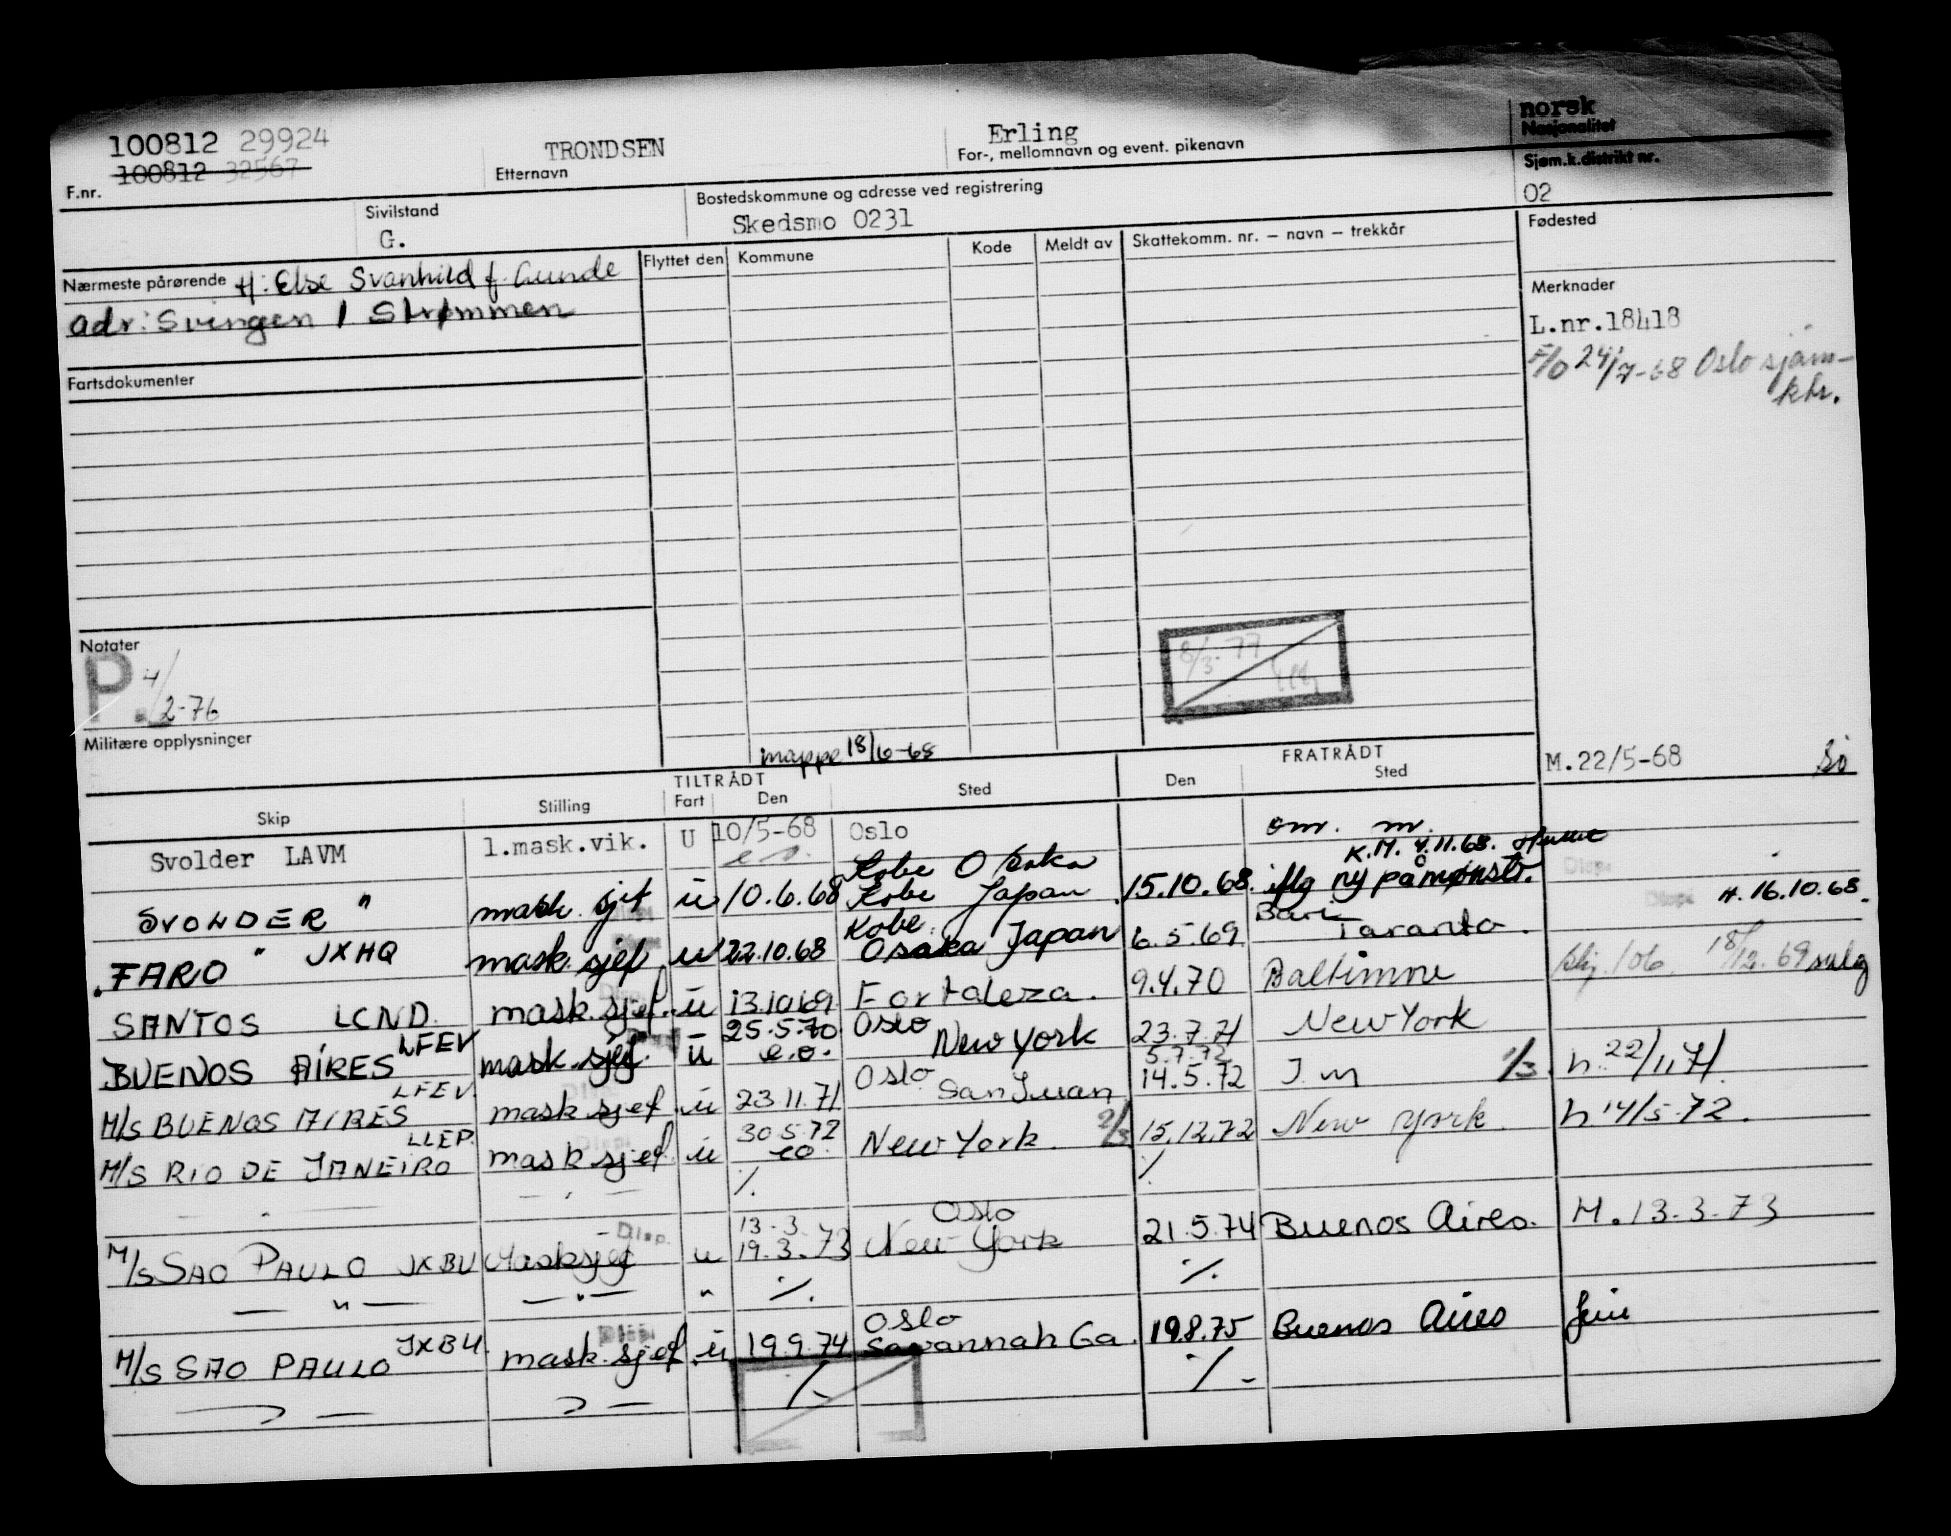 norsk
100812 29924 TRONDSEN Erling Nasjonalitet
100812 32567
F.nr. Etternavn For-, mellomnavn og event. pikenavn Sjøm.k.distrikt nr.
02
Sivilstand Bostedskommune og adresse ved registrering Fødested
G. Skedsmo 0231
Nærmeste pårørende H: Else Svanhild f. Lunde Flyttet den Kommune Kode Meldt av Skattekomm. nr. – navn – trekkår Merknader
adr: Svingen 1 Strømmen L.nr.18418
F/O 24/7-68 Oslo sjøm-
ktr.
Fartsdokumenter
8/3.77
Notater
P. 4/2-76
Militære opplysninger
mappe 18/6-68
M.22/5-68
TILTRÅDT FRATRÅDT
Skip Stilling Fart Den Sted Den Sted
Svolder LAVM 1.mask.vik. U 10/5-68 Oslo om. m.
K.M. 4.11.68.
Kobe Osaka
SVOLDER " mask. sjef u 10.6.68 Kobe Japan 15.10.68. iflg ny påmønstr. H. 16.10.68.
Kobe Bari
FARO " JXHQ mask. sjef u 22.10.68 Osaka Japan 6.5.69 Taranto. 18/12.69
SANTOS LCND mask. sjef. u 13.10.69 Fortaleza. 9.4.70 Baltimore
LFEV 25.5.70 Oslo
BUENOS AIRES mask. sjef. u e.o. New York 23.7.71 New York
LFEV. Oslo 5.7.72
M/S BUENOS AIRES mask sjef u 23.11.71 San Juan 14.5.72 1/3 h 22/11.71
LLEP. 30.5.72
M/S RIO DE JANEIRO mask sjef. u eo. New York. 2/3 15.12.72 New York. h 14/5-72.
— " — — " — ٪. ٪.
13.3. Oslo
M/S SAO PAULO JXBU Masksjef u 19.3.73 New York 21.5.74 Buenos Aires. M. 13.3.73
— " — — " — " ٪. ٪.
JXBU. Oslo
M/S SAO PAULO mask. sjef u 19.9.74 Savannah Ga. 19.8.75 Buenos Aires
— " — — " — ٪. ٪.